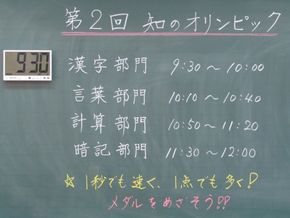 第2回 知のオリンピック
930
漢字部門 9:30〜10:00
言葉部門 10:10〜10:40
計算部門 10:50〜11:20
暗記部門 11:30〜12:00
☆1秒でも速く、1点でも多く!
メダルをめざそう!!